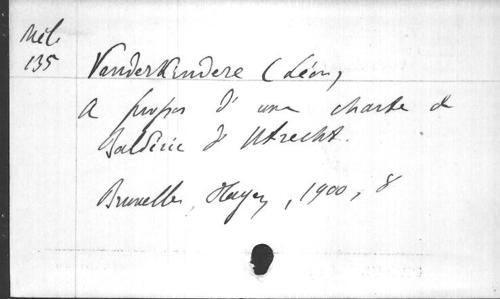 Mél.
135
Vanderkindere (Léon)
A propos d'une charte de
Baldéric d'Utrecht.
Bruxelles, Hayez, 1900, 8